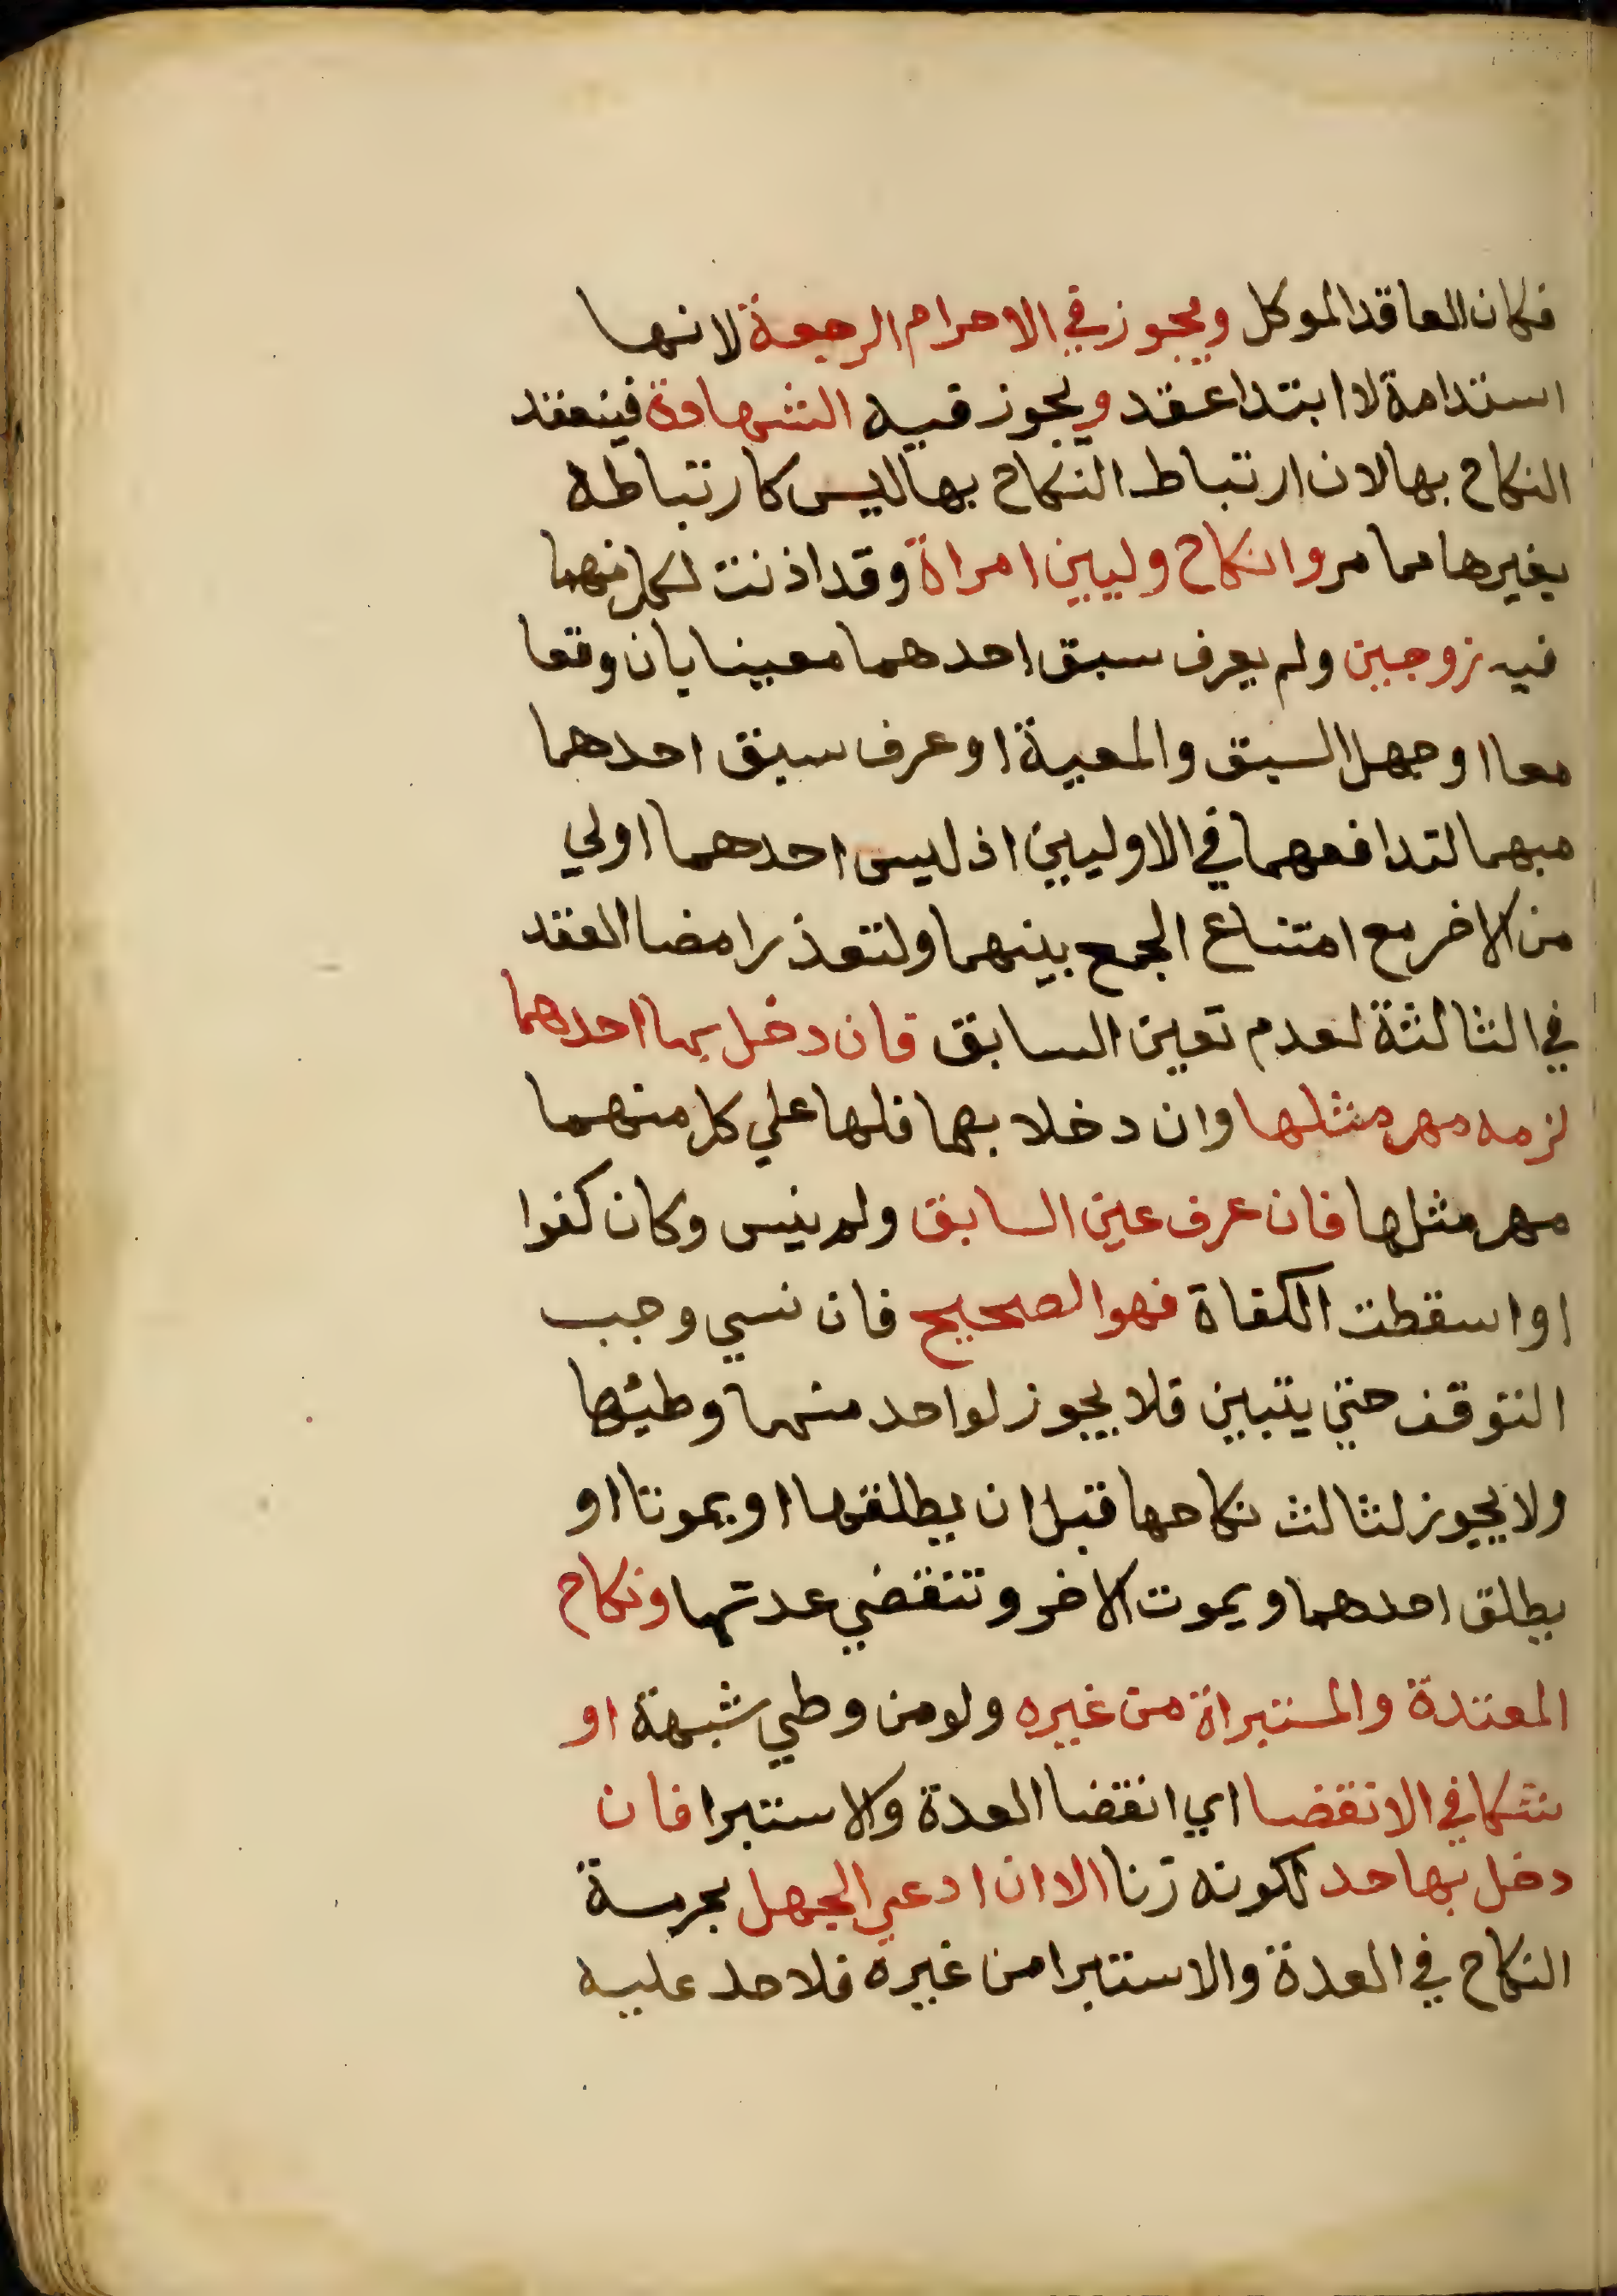 فكان العاقد الموكل ويجوز في الاحرام الرجعة لانها
استدامة لا ابتدا عقد ويجوز فيه الشهادة فينعقد
النكاح بها لان ارتباط النكاح بها ليس كارتباطه
بغيرها مما مر وانكاح وليين امراة وقد اذنت لكل منهما
فيه زوجين ولم يعرف سبق احدهما معينا بان وقعا
معا او جهل السبق والمعية او عرف سبق احدهما
مبهما لتدافعهما في الاوليين اذ ليس احدهما اولي
من الاخر مع امتناع الجمع بينهما ولتعذر امضا العقد
في الثالثة لعدم تعين السابق فان دخل بها احدهما
لزمه مهر مثلها وان دخلا بها فلها علي كل منهما
مهر مثلها فان عرف عين السابق ولم ينس وكان كفوا
او اسقطت الكفاة فهو الصحيح فان نسي وجب
التوقف حتي يتبين فلا يجوز لواحد منهما وطيئها
ولا يجوز لثالث نكاحها قبل ان يطلقها او يموتا او
يطلق احدهما ويموت الاخر وتنقضي عدتها ونكاح
المعتدة والمستبراة من غيره ولو من وطي شبهة او
شكا في الانقضا اي انقضا العدة والاستبرا فان
دخل بها حد لكونه زنا الا ان ادعي الجهل بحرمة
النكاح في العدة والاستبرا من غيره فلا حد عليه